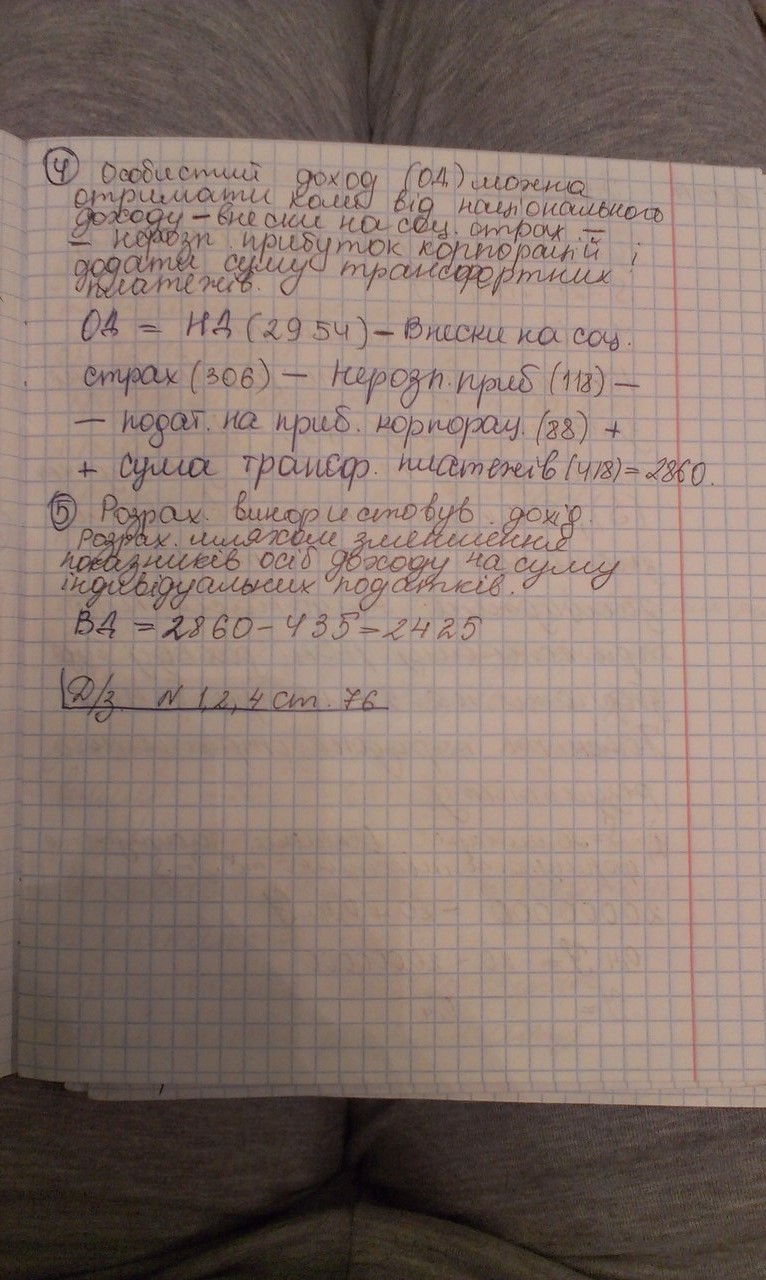 ④ Особистий доход (ОД) можна
отримати коли від національного
доходу – внески на соц. страх. –
– нерозп. прибуток корпорацій і
додати суму трансфортних
платежів.
ОД = НД (2954) – Внески на соц.
страх (306) – Нерозп. приб (118) –
– подат. на приб. корпорац. (88) +
+ сума трансф. платежів (418) = 2860.
⑤ Розрах. використовув. дохід.
Розрах. шляхом зменшення
показників осіб доходу на суму
індивідуальних податків.
ВД = 2860 – 435 = 2425
Д/з. N 1,2,4 ст. 76